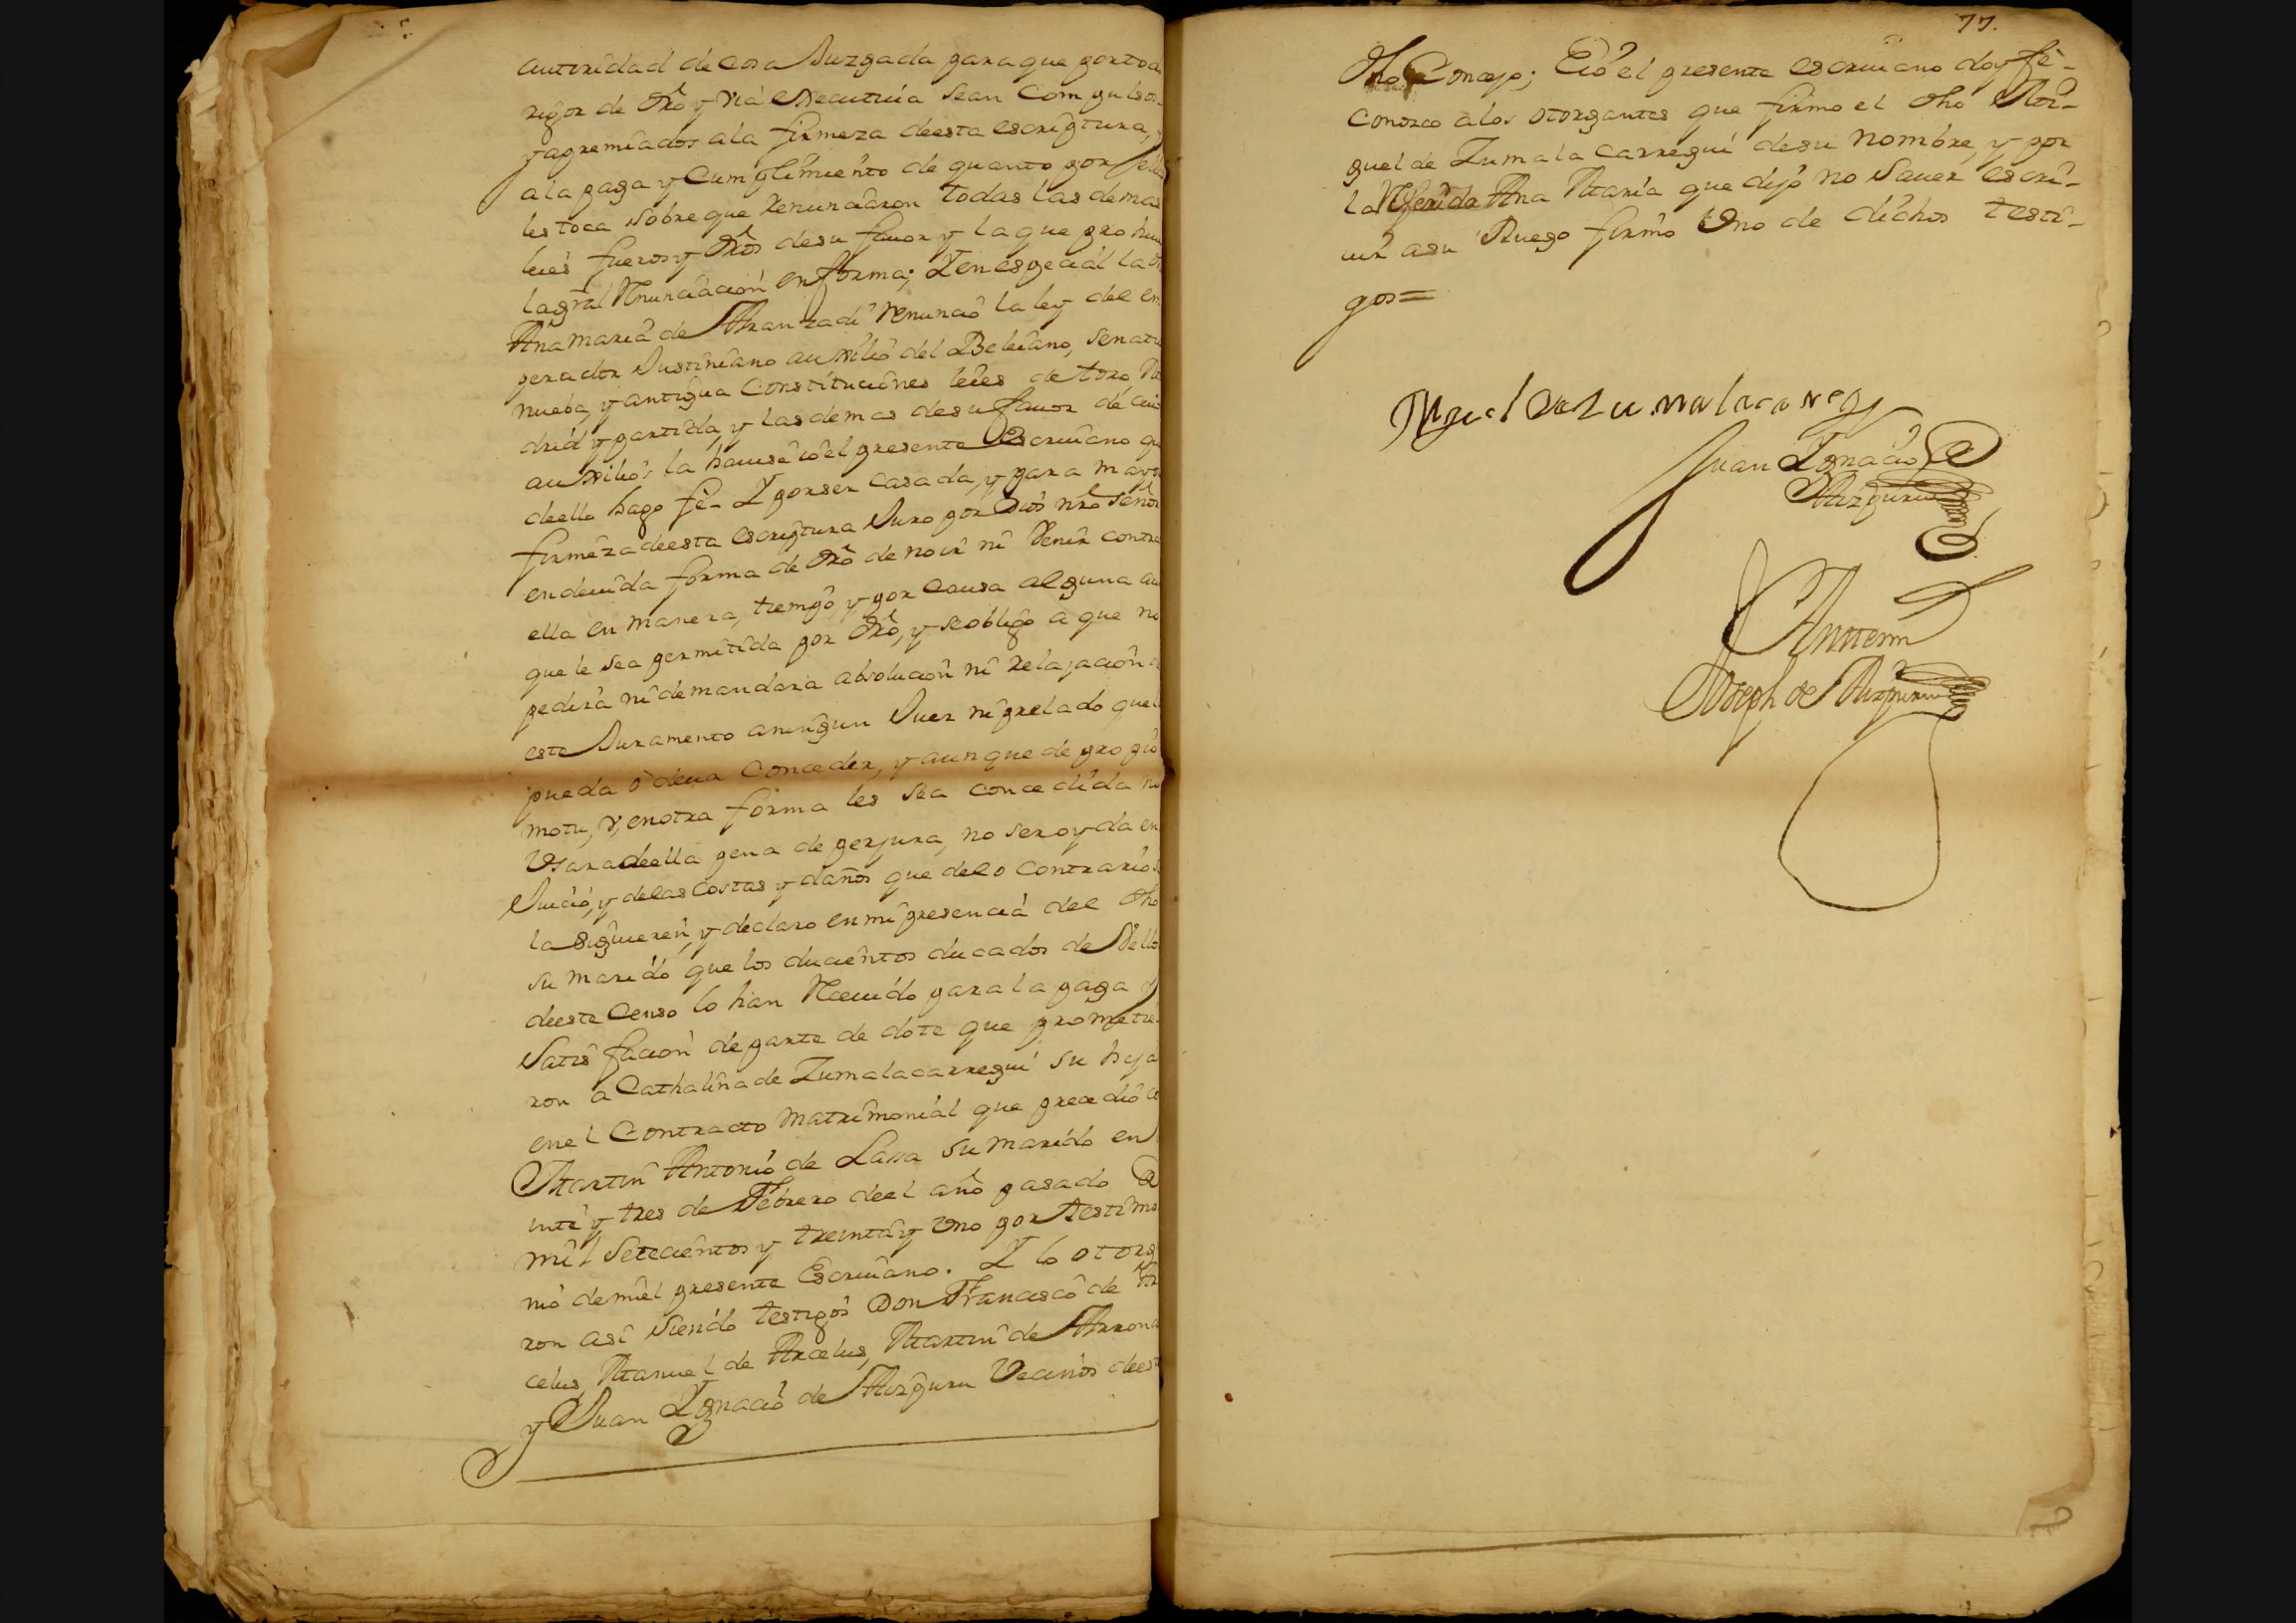 autoridad de cosa Juzgada para que por todo
rigor de dro y via executiua sean compulsos
y apremiados a la firmeza deesta escriptura, y
a la paga y cumplimiento de quanto por ella
les toca sobre que Renunciaron todas las demas
leies fueros y dros desu fauor y la que prohiue
la gral Renunciacion en forma; Y en especial la dha
Ana maria de Aranzadi renunció la ley del em
perador Justiniano auxilio del Beleiano, senatus
nueba, y antigua Constituciones leies de toro, Ma
drid y partida, y las demas desu fauor de cuios
auxilios la hauise io el presente Escriuano que
deello hago fe. Y por ser casada, y para mayor
firmeza deesta escriptura Juro por Dios nro señor
en deuida forma de dro de no ir ni Venir contra
ella en manera, tiempo, y por causa alguna aun
que le sea permitida por dro, y se obligo a que no
pedira ni demandara absolucion ni relajacion de
este Juramento a ningun Juez ni prelado que le
pueda o deua Conceder, y aunque de propio
motu, y en otra forma les sea concedida no
Vsara deella pena de perjura, no ser oyda en
Juicio, y de las Costas y daños que de lo contrario se
la siguieren, y declaro en mi presencia del dho
su marido que los ducientos ducados de Vellon
deeste Censo lo han Recuido para la paga y
Satisfacion de parte de dote que prometie
ron a Cathalina de Zumalacarregui su hija
en el Contracto matrimonial que precedio a
Martin Antonio de Lasa su marido en
inte y tres de Febrero deel año pasado de
mil setecientos y treinta y vno por testimo
nio de mi el presente Escriuano. Y lo otorga
ron asi siendo testigos Don Francisco de Ar
celus, Manuel de Arcelus, Martin de Arrona
y Juan Ygnacio de Aizpuru Vecinos deeste
77.
dho Concejo; E io el presente escriuano doy fe
conozco a los otorgantes que firmo el dho Mi-
guel de Zumalacarregui desu nombre, y por
la Referida Ana Maria que dijo no Sauer escri-
uir a su Ruego firmo Vno de dichos testi-
gos=
Miguel de Zumalacarregi
Juan Ygnacio de
Aizpuru
Antemi
Joseph de Aizpuru